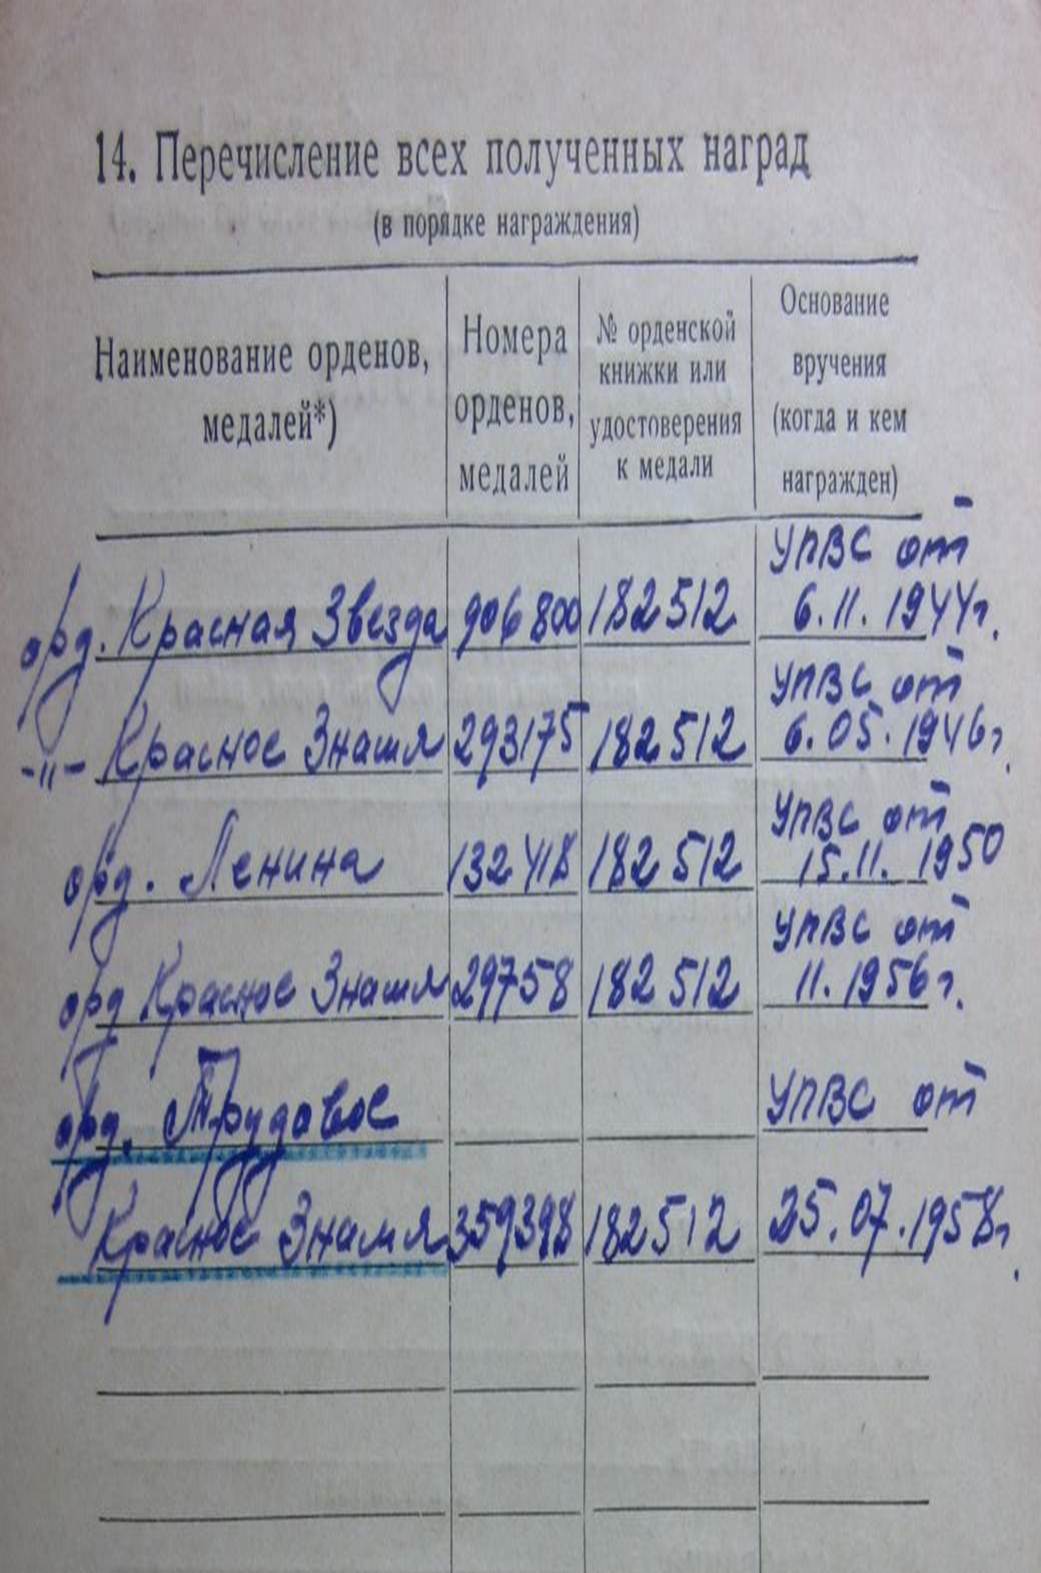 14. Перечисление всех полученных наград
(в порядке награждения)
Наименование орденов,
медалей*)
Номера
орденов,
медалей
№ орденской
книжки или
удостоверения
к медали
Основание
вручения
(когда и кем
награжден)
орд. Красная Звезда 906800 182512 УПВС от
6.11.1944г.
-"- Красное Знамя 293175 182512 УПВС от
6.05.1946г.
орд. Ленина 132418 182512 УПВС от
15.11.1950
орд Красное Знамя 29758 182512 УПВС от
11.1956г.
орд. Трудовое УПВС от
Красное Знамя 359398 182512 25.07.1958г.